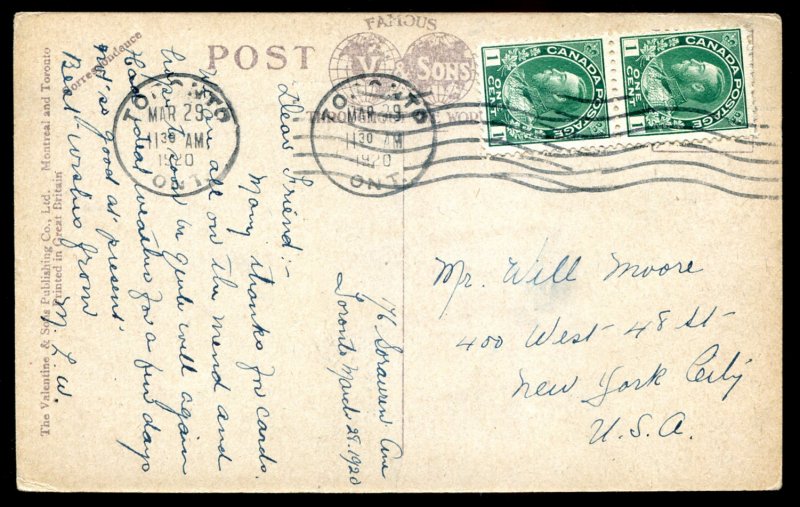 FAMOUS
POST
V & SONS
TORONTO
MAR 29
11 30 AM
1920
ONT.
TORONTO
MAR 29
11 30 AM
1920
ONT.
CANADA POSTAGE
1 ONE CENT 1
CANADA POSTAGE
1 ONE CENT 1
Correspondence
The Valentine & Sons Publishing Co., Ltd. Montreal and Toronto
Printed in Great Britain
176 Sorauren Ave
Toronto March 28. 1920
Dear Friend:-
Many thanks for cards.
You all on the mend and
to come in quite well again
Had ideal weather for a few days
not so good at present
Best wishes from
M. L. W.
Mr. Will Moore
400 West 48 St
New York City
U.S.A.